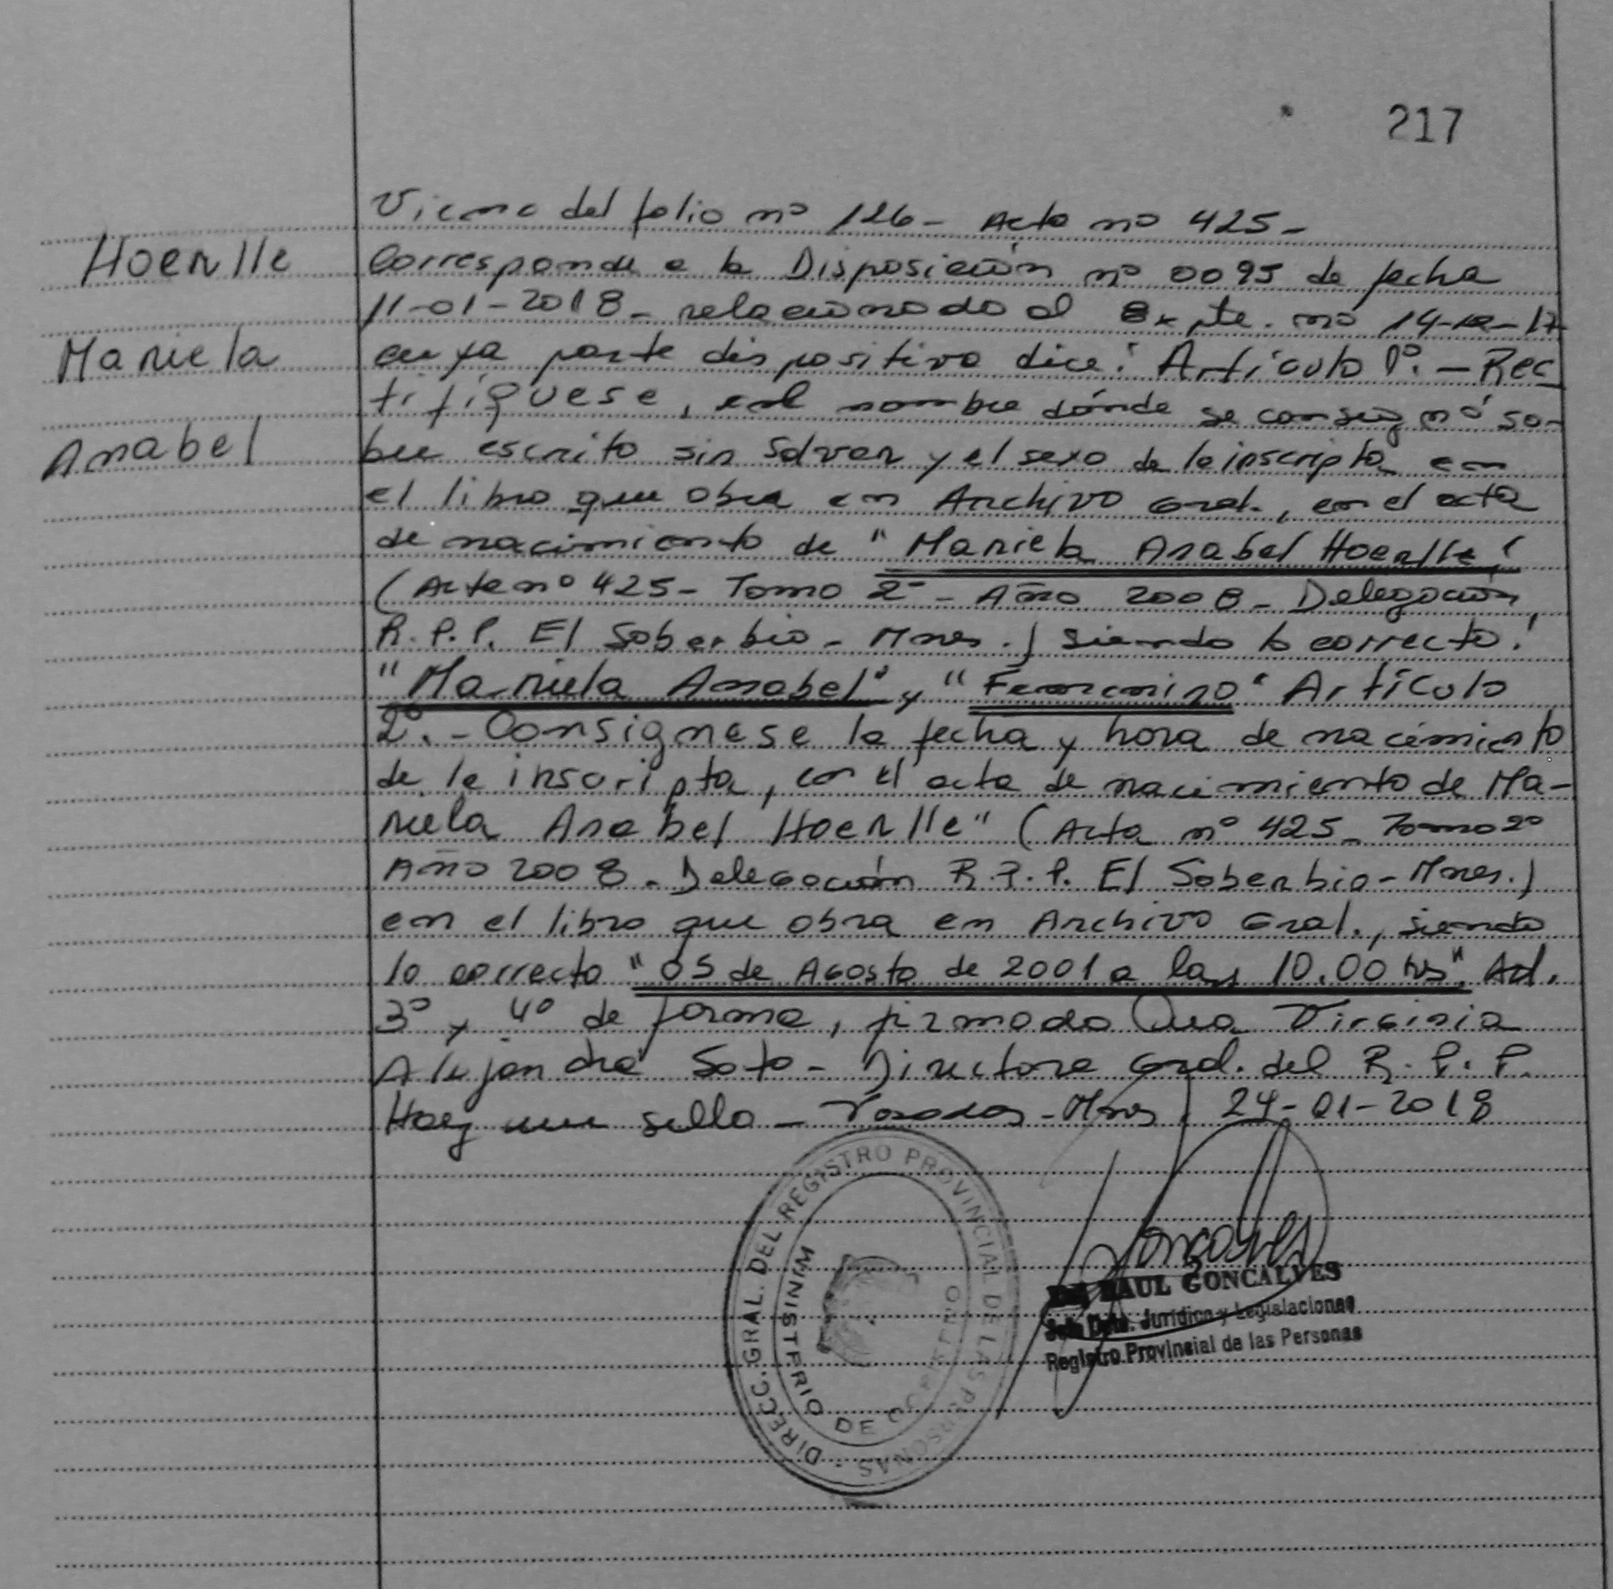 217
Viene del folio nº 126 - Acta nº 425 -
Hoerlle
Corresponde a la Disposición nº 0095 de fecha
11-01-2018 - relacionado al Expte. nº 14- -17
Mariela
cuya parte dispositiva dice: Artículo 1º. - Rec
tifíquese, en el nombre dónde se consignó so-
Anabel
bre escrito sin salvar y el sexo de la inscripta en
el libro que obra en Archivo Gral., en el acta
de nacimiento de "Mariela Anabel Hoerlle"
(Acta nº 425 - Tomo 2º - Año 2008 - Delegación
R.P.P. El Soberbio - Mnes.) siendo lo correcto:
"Mariela Anabel" y "Femenino" Artículo
2º. - Consignese la fecha y hora de nacimiento
de la inscripta, en el acta de nacimiento de Ma-
riela Anabel Hoerlle" (Acta nº 425 - Tomo 2º
Año 2008 - Delegación R.P.P. El Soberbio - Mnes.)
en el libro que obra en Archivo Gral., siendo
lo correcto "05 de Agosto de 2001 a las 10.00 hs". Ad.
3º y 4º de forma, firmado Dra Virginia
Alejandra Soto - Directora Gral. del R.P.P.
Hay un sello - Posadas - Mnes, 24-01-2018
DIRECC. GRAL. DEL REGISTRO PROVINCIAL DE LAS PERSONAS -
MINISTERIO DE GOBIERNO
Goncalves
RAUL GONCALVES
Jefe Dpto. Jurídico y Legislaciones
Registro Provincial de las Personas